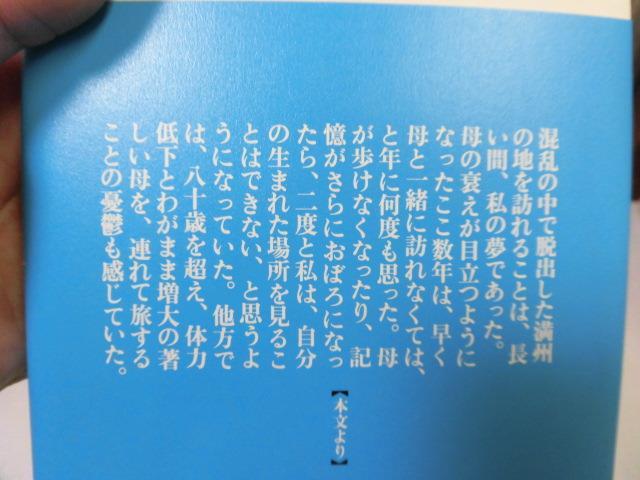 混乱の中で脱出した満州
の地を訪れることは、長
い間、私の夢であった。
母の衰えが目立つように
なったここ数年は、早く
母と一緒に訪れなくては、
と年に何度も思った。母
が歩けなくなったり、記
憶がさらにおぼろになっ
たら、二度と私は、自分
の生まれた場所を見るこ
とはできない、と思うよ
うになっていた。他方で
は、八十歳を超え、体力
低下とわがまま増大の著
しい母を、連れて旅する
ことの憂鬱も感じていた。
【本文より】